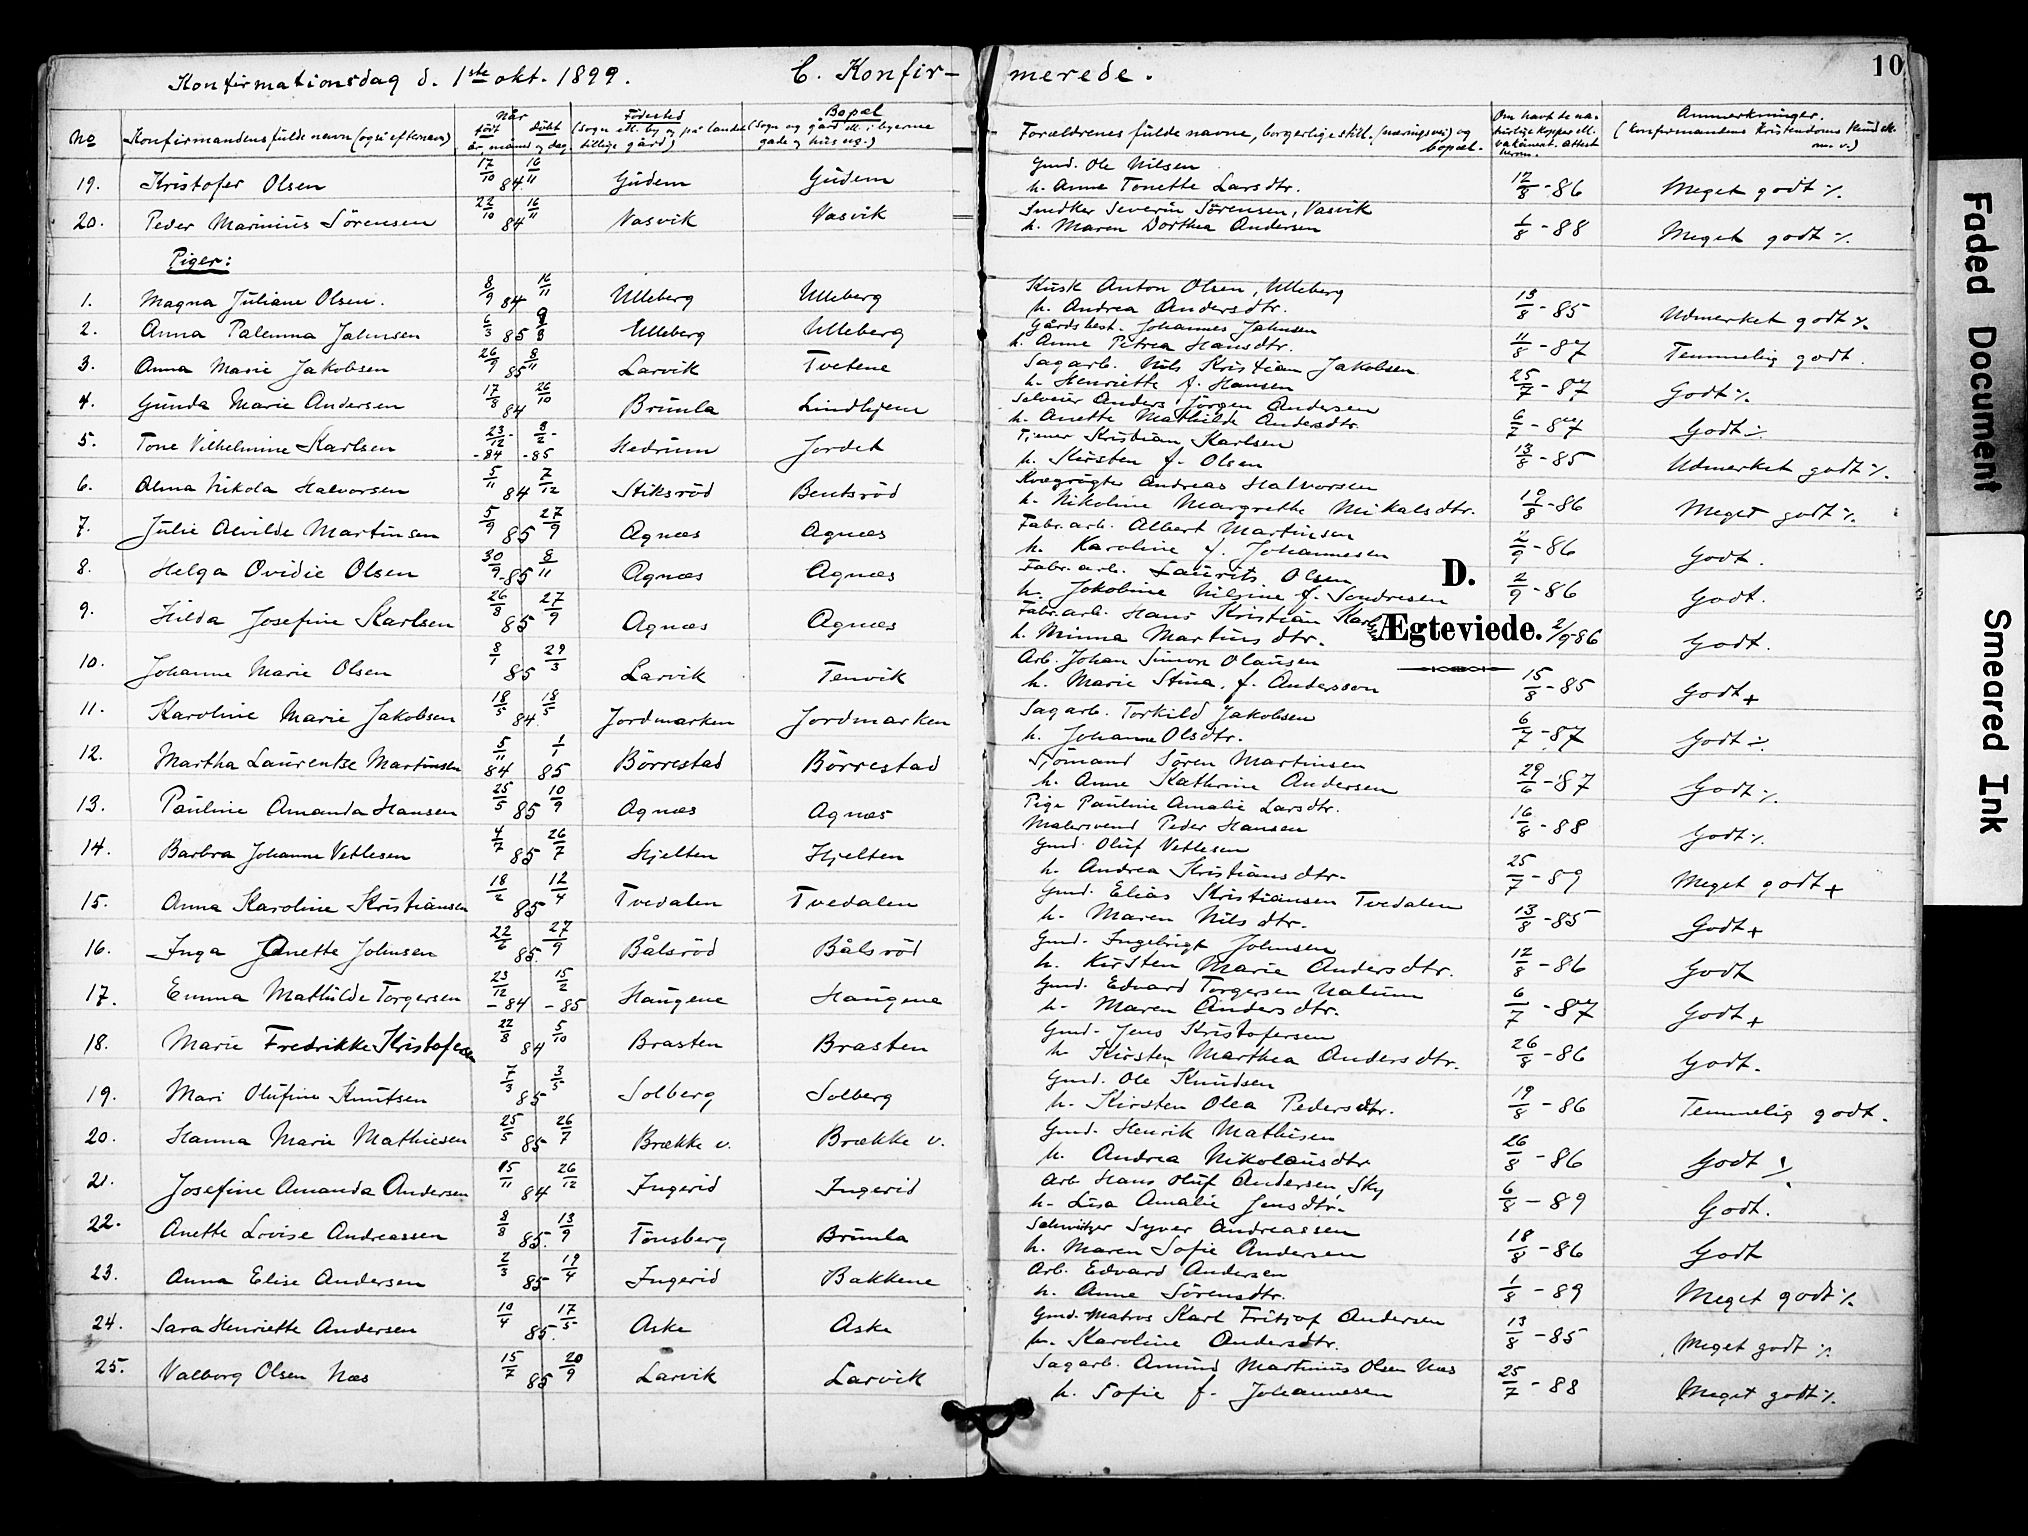 Konfirmationsdag d. 1ste okt. 1899. C. Konfir- merede. 10
No Konfirmandens fulde navn (også efternavn) Når født år, måned og dag døbt Fødested (sogn ell. by og på landet tillige gård) Bopæl (sogn og gård ell. i byerne gade og hus no.) Forældrenes fulde navne, borgerlige still. (næringsvei) og bopæl. Om havt de naturlige kopper ell. vakcineret. Attest herom. Anmerkninger. (konfirmandens Kristendoms kundsk. m. v.)
19. Kristofer Olsen 17/10 84 16/11 Gudem Gudem Gmd. Ole Nilsen h. Anne Tonette Larsdtr. 12/8-86 Meget godt ./.
20. Peder Marinius Sörensen 22/10 84 16/11 Vasvik Vasvik Snedker Severin Sörensen, Vasvik h. Maren Dorthea Andersen 6/8-88 Meget godt ./.
Piger:
1. Magna Juliane Olsen. 8/9 84 16/11 Ulleberg Ulleberg Kusk Anton Olsen, Ulleberg h. Andrea Andersdtr. 13/8-85 Udmerket godt ./.
2. Anna Palemna Jahnsen 6/3 85 8/3 Ulleberg Ulleberg Gårdsbest. Johannes Jahnsen h. Anne Petrea Hansdtr. 11/8-87 Temmelig godt.
3. Anna Marie Jakobsen 26/9 85 8/11 Larvik Tvetene Sagarb. Nils Kristian Jakobsen h. Henriette f. Hansen 25/7-87 Godt ./.
4. Gunda Marie Andersen 17/8 84 26/10 Brunla Lindhjem Selveier Anders Jörgen Andersen h. Anette Mathilde Andersdtr. 6/7-87 Godt ./.
5. Tone Vilhelmine Karlsen 23/12-84 8/2-85 Hedrum Jordet Tömer Kristian Karlsen h. Kirsten f. Olsen 13/8-85 Udmerket godt ./.
6. Alma Nikola Halvorsen 5/11 84 7/12 Stiksröd Bentsröd Kvægrögter Andreas Halvorsen h. Nikoline Margrethe Mikalsdtr. 19/8-86 Meget godt ./.
7. Julie Alvilde Martinsen 5/9 85 27/9 Agnæs Agnæs Fabr.arb. Albert Martinsen h. Karoline f. Johannesen 2/9-86 Godt.
8. Helga Ovidie Olsen 30/9 85 8/11 Agnæs Agnæs Fabr. arb. Laurits Olsen h. Jakobine Nilsine f. Sondresen 2/9-86 Godt.
D.
Ægteviede.
9. Hilda Josefine Karlsen 26/8 85 27/9 Agnæs Agnæs Fabr.arb. Hans Kristian Karlsen h. Minna Martinsdtr. 2/9-86 Godt.
10. Johanne Marie Olsen 8/1 85 29/3 Larvik Tenvik Arb. Johan Simon Olausen h. Marie Stina, f. Andersson 15/8-85 Godt +
11. Karoline Marie Jakobsen 18/5 84. 18/5 Jordmarken Jordmarken Sagarb. Torkild Jakobsen h. Johanne Olsdtr. 6/7-87 Godt ./.
12. Martha Laurentze Martinsen 5/11 84 1/1 85 Börrestad Börrestad Sjömand Sören Martinsen h. Anne Kathrine Andersen 29/6-87 Godt ./.
13. Pauline Amanda Hansen 25/5 85 10/9 Agnæs Agnæs Pige Pauline Amalie Larsdtr. Malersvend Peder Hansen 16/8-88 Godt ./.
14. Barbra Johanne Vetlesen 4/7 85 26/7 Hjelten Hjelten Gmd. Oluf Vetlesen h. Andrea Kristiansdtr. 25/7-89 Meget godt +
15. Anna Karoline Kristiansen 18/2 85 12/4 Tvedalen Tvedalen Gmd. Elias Kristiansen Tvedalen h. Maren Nilsdtr. 13/8-85 Godt +
16. Inga Janette Johnsen 22/6 85. 27/9 Bålsröd Bålsröd Gmd. Ingebrigt Johnsen h. Kirsten Marie Andersdtr. 12/8-86 Godt
17. Emma Mathilde Torgersen 23/12-84 15/2-85 Haugene Haugene Gmd. Edvard Torgersen Nalum h. Maren Andersdtr. 6/7-87 Godt +
18. Marie Fredrikke Kristofersen 22/8 84 5/10 Brasten Brasten Gmd. Jens Kristofersen h. Kirsten Marthea Andersdtr. 26/8-86 Godt.
19. Mari Olufine Knutsen 7/3 85 3/5 Solberg Solberg Gmd. Ole Knudsen h. Kirsten Olea Pedersdtr. 19/8-86 Temmelig godt.
20. Hanna Marie Mathiesen 25/5 85 26/7 Brække v. Brække v. Gmd. Henrik Mathisen h. Andrea Nikolausdtr. 26/8-86 Godt ./.
21. Josefine Amanda Andersen 15/11 84 26/12 Ingerid Ingerid Arb Hans Oluf Andersen Sky h. Lisa Amalie Jensdtr. 6/8-89 Godt.
22. Anette Lovise Andreassen 8/8 85. 13/9 Tönsberg Brunla Schveitzer Syver Andreassen h. Maren Sofie Andersen 18/8-86 Godt
23. Anna Elise Andersen 2/3 85 19/4 Ingerid Bakkene Arb. Edvard Andersen h. Anne Sörensdtr. 1/8-89 Meget godt ./.
24. Sara Henriette Andersen 10/4 85. 17/5 Aske Aske Gmd. Matros Karl Fritjof Andersen h. Karoline Andersdtr. 13/8-85 Meget godt ./.
25. Valborg Olsen Næs 15/7 85 20/9 Larvik Larvik Sagarb. Amund Martinius Olsen Næs h. Sofie f. Johannesen 25/7-88 Meget godt ./.
Faded Document
Smeared Ink